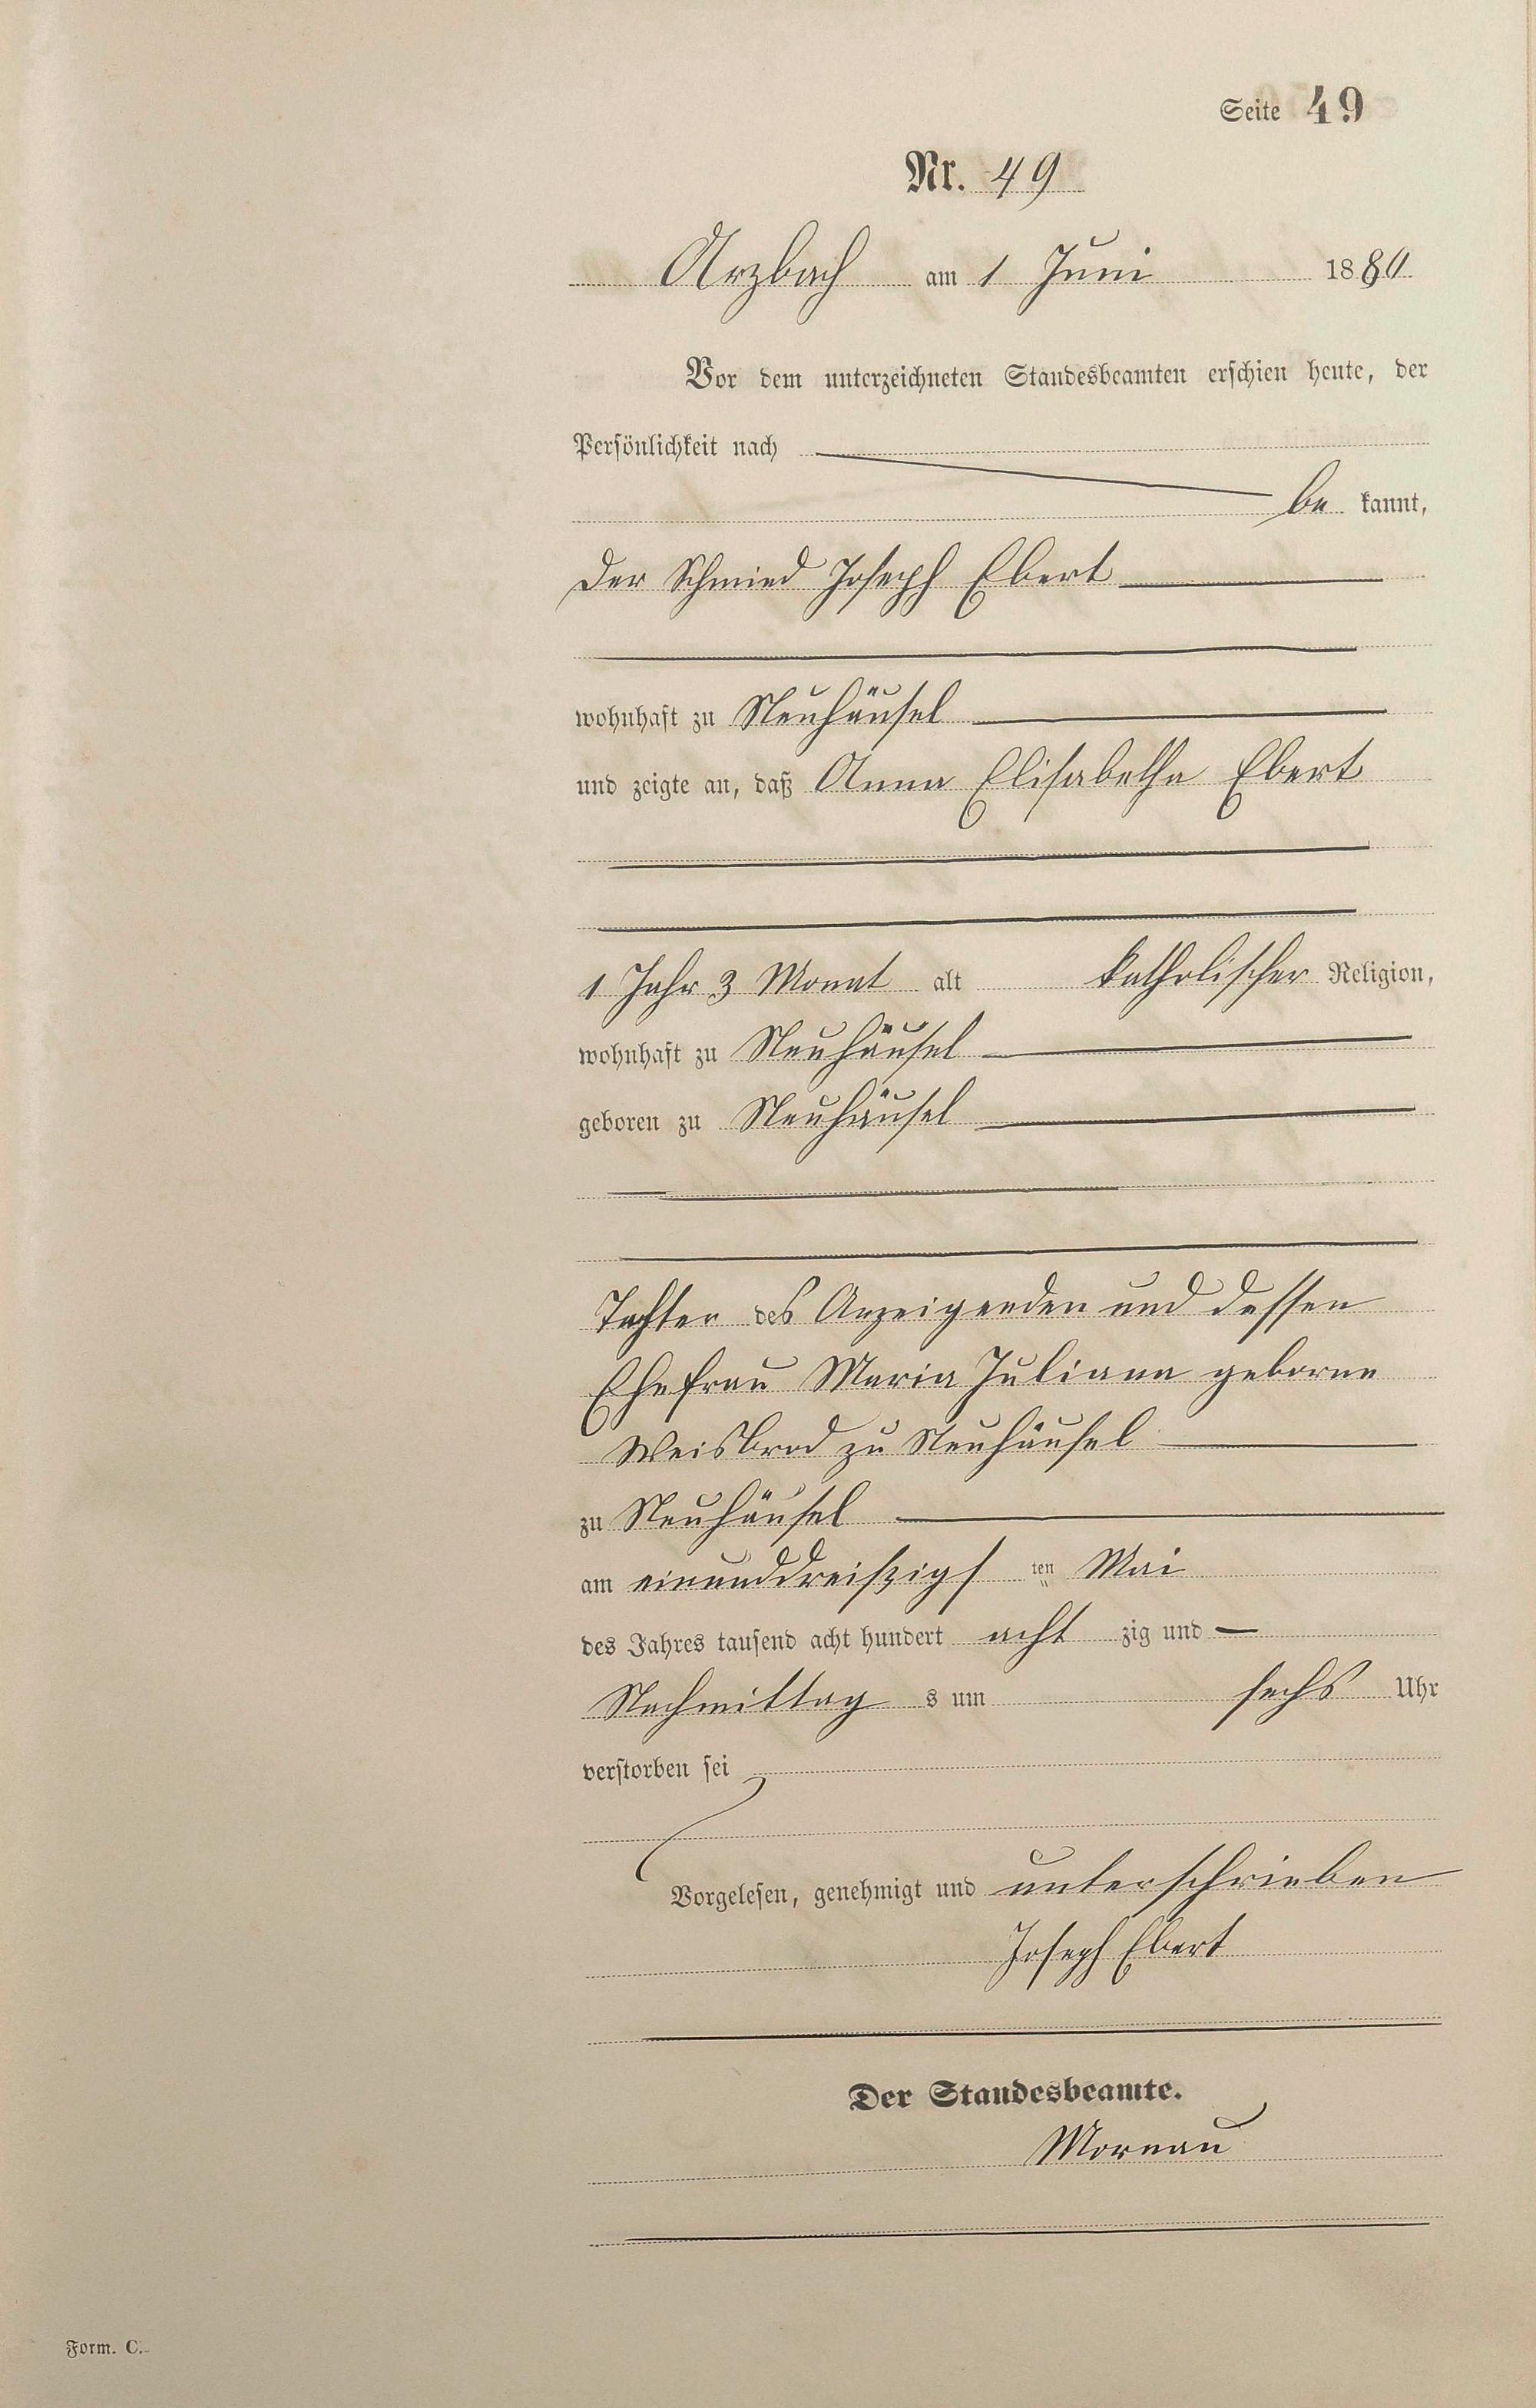 Seite 49
Nr. 49
Arzbach am 1 Juni 1880
Vor dem unterzeichneten Standesbeamten erschien heute, der
Persönlichkeit nach
be kannt,
der Schmied Joseph Ebert
wohnhaft zu Neuhäusel
und zeigte an, daß Anna Elisabetha Ebert
1 Jahr 3 Monat alt katholischer Religion,
wohnhaft zu Neuhäusel
geboren zu Neuhäusel
Tochter des Anzeigenden und dessen
Ehefrau Maria Juliana geborne
Weisbrod zu Neuhäusel
zu Neuhäusel
am einunddreißigs ten Mai
des Jahres tausend acht hundert acht zig und
Nachmittag s um sechs Uhr
verstorben sei
Vorgelesen, genehmigt und unterschrieben
Joseph Ebert
Der Standesbeamte.
Mornau
Form. C.